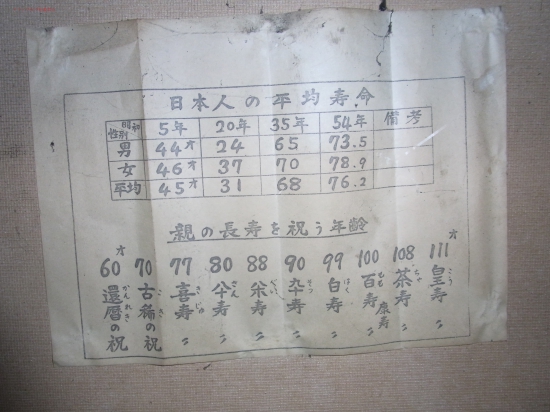 日本人の平均寿命
性別 昭和 5年 20年 35年 54年 備考
男 44才 24 65 73.5
女 46才 37 70 78.9
平均 45才 31 68 76.2
親の長寿を祝う年齢
60才 還暦の祝
70 古稀の祝
77 喜寿 〃
80 傘寿 〃
88 米寿 〃
90 卆寿 〃
99 白寿 〃
100 百寿 〃
108 茶寿 〃
111才 皇寿 〃